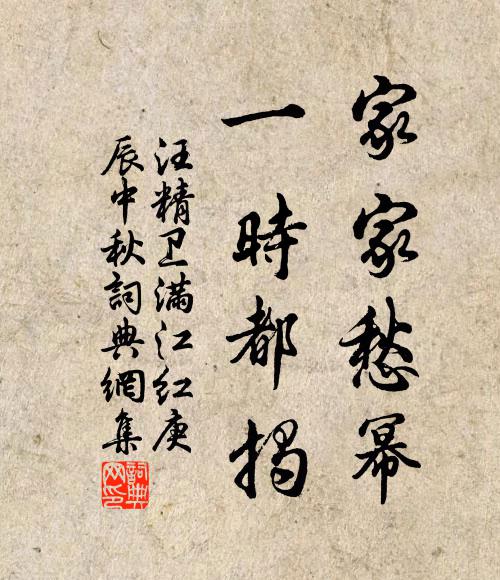 家家愁幂
一時都揭
汪精卫滿江红庚
辰中秋詞典網集
詞典网印